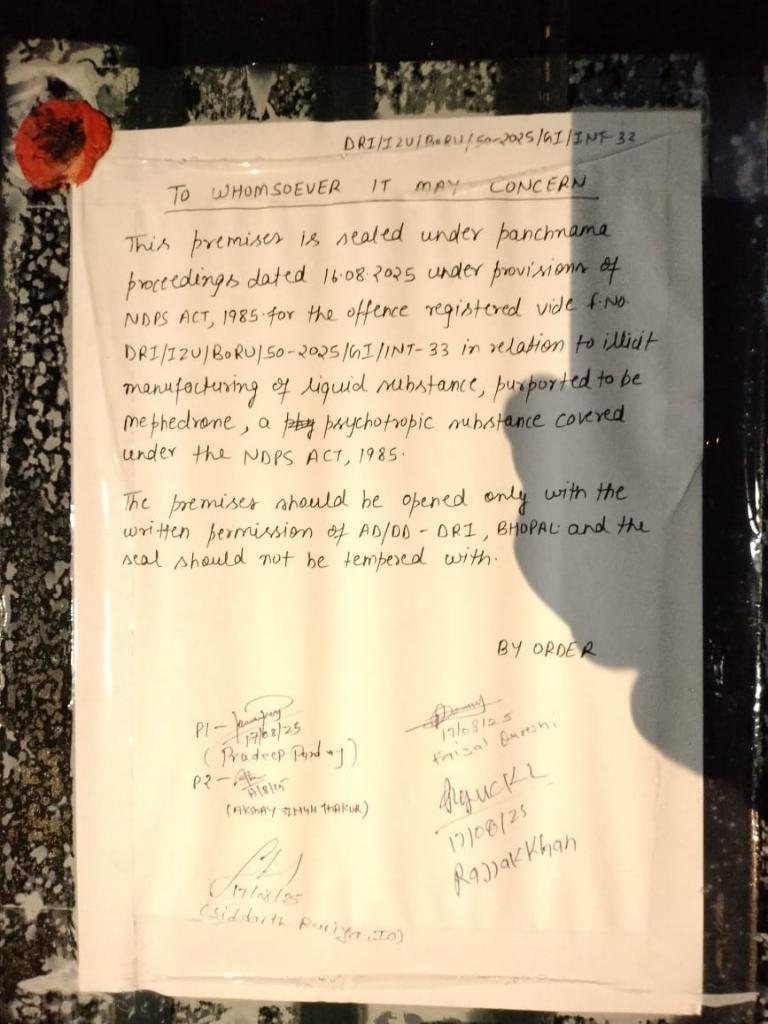 DRI/IZU/BoRU/50-2025/GI/INT-32
TO WHOMSOEVER IT MAY CONCERN
This premises is sealed under panchnama
proceedings dated 16.08.2025 under provisions of
NDPS ACT, 1985 for the offence registered vide f.No.
DRI/IZU/BoRU/50-2025/GI/INT-33 in relation to illicit
manufacturing of liquid substance, purported to be
mephedrone, a psychotropic substance covered
under the NDPS ACT, 1985.
The premises should be opened only with the
written permission of AD/DD - DRI, BHOPAL and the
seal should not be tempered with.
BY ORDER
P1 -
17/08/25
(Pradeep Panday)
P2 -
(AKSHAY SINGH THAKUR)
17/08/25
Faisal Qureshi
17/08/25
Rajjak Khan
17/08/25
(Siddarth, IO)